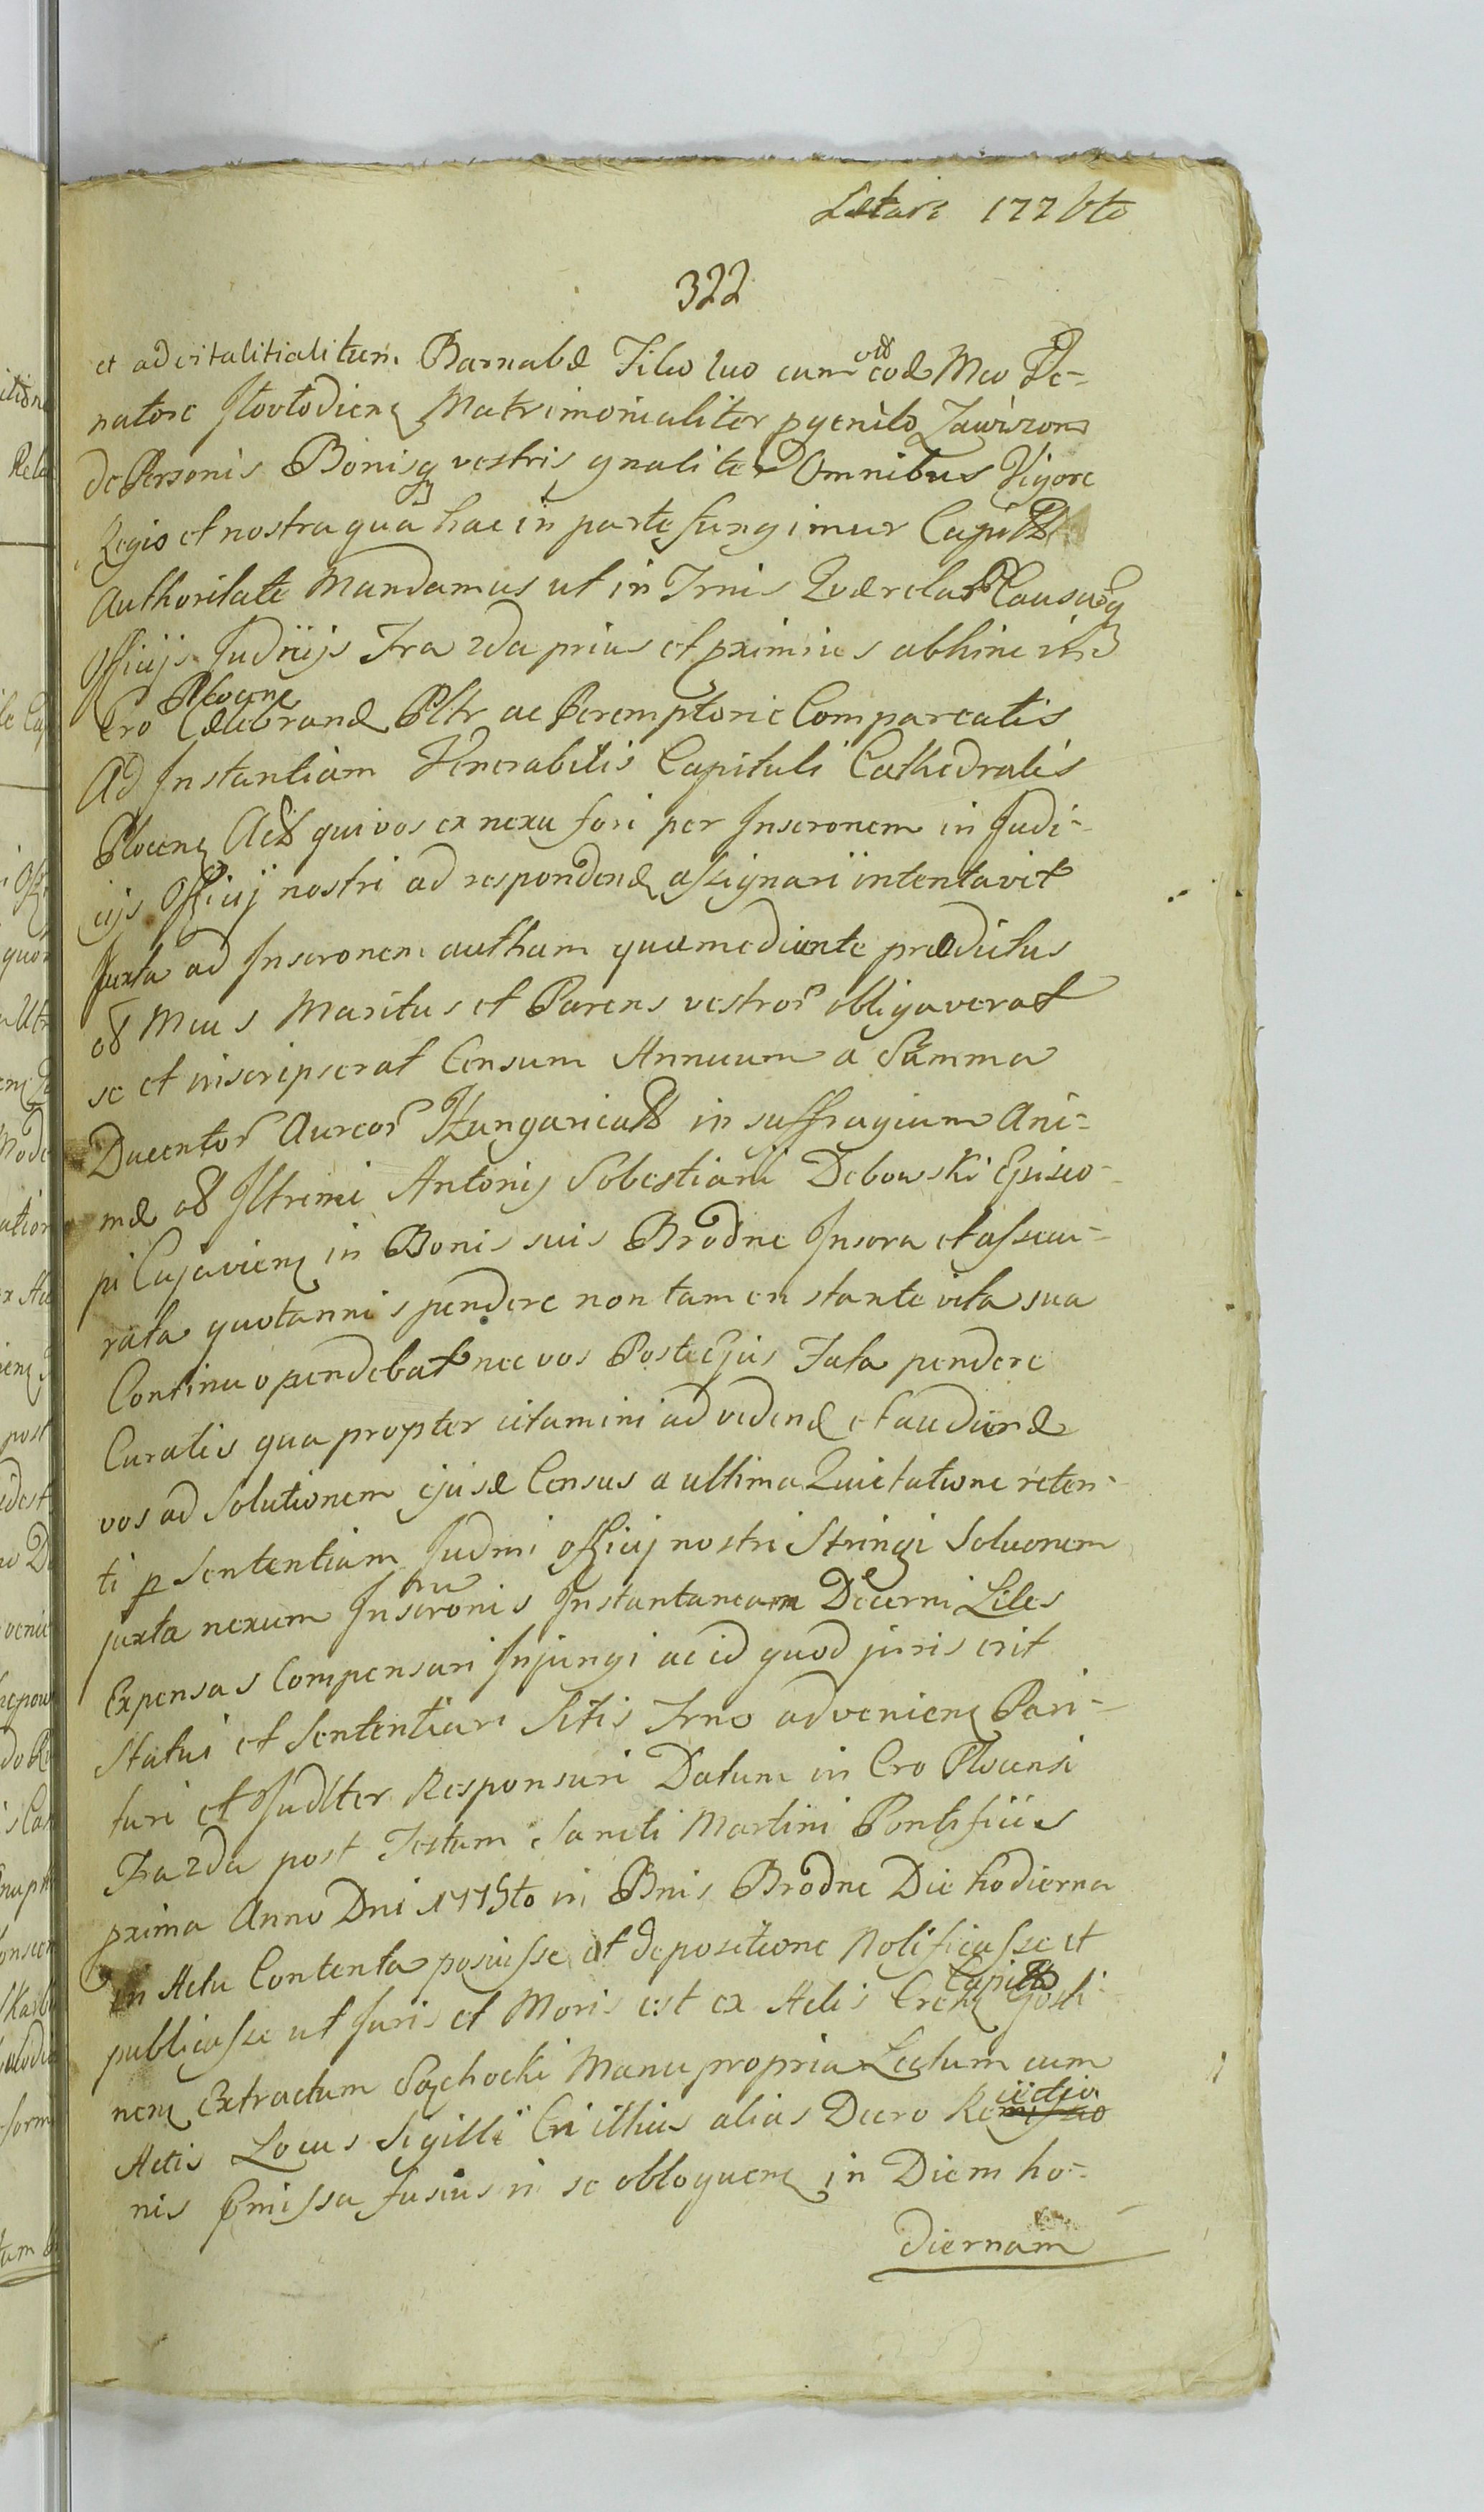 Lætare 1776to
322
et advitalitialitum Barnabæ Filio suo cum eod Mco Ve-
natore Matrimonialiter pgenito Zawiszom
de Personis Bonisq vestris gnaliter Omnibus Vigore
Regio et nostra qua hac in parte fungimur Capitli
Authoritate Mandamus ut in Trnis Querelar Causarq
Officij Judicijs Fra 2da prius et pximius abhinc in
Plocen
Cro Celebrand Pltr ac Peremptorie Compareatis
Ad Instantiam Venerabilis Capituli Cathedralis
Plocen Act qui vos ex nexu fori per Inscronem in Judi-
cijs Officij nostri ad responden assignari intentavit
Juxta ad Inscronem autham qua mediante prædictus
ol Mcus Maritus et Parens vestror obligaverat
se et inscripserat Censum Annuum a Summa
Ducentor Aureor Hungarical in suffragium Ani-
mæ ol Iltrmi Antonij Sebestiani Debowski Episco-
pi Cujavien in Bonis suis Brodne Inscra et assecu-
rata quotannis pendere non tamen stante vita sua
Continuo pendebat nec vos Post Ejus Fata pendere
Curatis qua propter citamini ad videnđ et audienđ
vos ad Solutionem ejusđ Census a ultima Quietatione reten-
ti p Sententiam Judrii officij nostri Stringi Soluonem
juxta nexum Inscronis Instantaneam Decerni Lites
Expensas Compensari Injungi ac id quod juris erit
Statui et Sententiari Sitis Trno advenien Pari-
turi et Judlter Responsuri Datum in Cro Plocensi
Fra 2da post Festum Sancti Martini Pontificis
pxima Anno Dni 1775to in Bnis Brodne Die hodierna
in Actu Contenta posuisse et depositione Notificasse et
publicasse ut Juris et Moris est ex Actis Cren Capitli Gosti-
nen Extractum Sochocki Manu propria Lectum cum
Actis Locus Sigilli Cri illius alias Decro Reiectio
nis pmissa fusius in se obloquen in Diem ho-
diernam